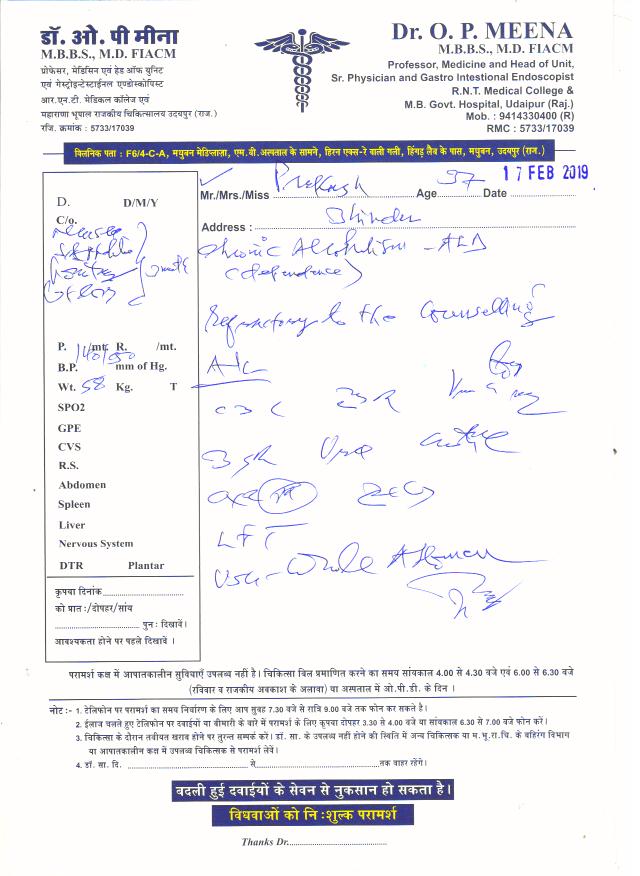 डॉ. ओ. पी मीना
M.B.B.S., M.D. FIACM
प्रोफेसर, मेडिसिन एवं हेड ऑफ यूनिट
एवं गेस्ट्रोइन्टेस्टाईनल एण्डोस्कोपिस्ट
आर.एन.टी. मेडिकल कॉलेज एवं
महाराणा भूपाल राजकीय चिकित्सालय उदयपुर (राज.)
रजि. क्रमांक : 5733/17039
Dr. O. P. MEENA
M.B.B.S., M.D. FIACM
Professor, Medicine and Head of Unit,
Sr. Physician and Gastro Intestional Endoscopist
R.N.T. Medical College &
M.B. Govt. Hospital, Udaipur (Raj.)
Mob. : 9414330400 (R)
RMC : 5733/17039
क्लिनिक पता : F6/4-C-A, मधुबन मेडिप्लाज़ा, एम.बी.अस्पताल के सामने, हिरन एक्स-रे वाली गली, हिंगड़ लैब के पास, मधुबन, उदयपुर (राज.)
Mr./Mrs./Miss Prakash Age 37 Date 17 FEB 2019
Address : Bhinder
D. D/M/Y
C/o.
P. /mt. R. /mt.
B.P. 140/90 mm of Hg.
Wt. 58 Kg. T
SPO2
GPE
CVS
R.S.
Abdomen
Spleen
Liver
Nervous System
DTR Plantar
कृपया दिनांक
को प्रात :/दोपहर/सांय
पुन: दिखावें।
आवश्यकता होने पर पहले दिखावें ।
Chronic Alcoholism - ALD
(dependence)
Refractory to the Counselling
Adv
CBC
LFT
USG - Whole Abdomen
परामर्श कक्ष में आपातकालीन सुविधाएँ उपलब्य नहीं है। चिकित्सा बिल प्रमाणित करने का समय सांयकाल 4.00 से 4.30 बजे एवं 6.00 से 6.30 बजे
(रविवार व राजकीय अवकाश के अलावा) या अस्पताल में ओ.पी.डी. के दिन ।
नोट :- 1. टेलिफोन पर परामर्श का समय निर्धारण के लिए आप सुबह 7.30 बजे से रात्रि 9.00 बजे तक फोन कर सकते है।
2. ईलाज चलते हुए टेलिफोन पर दवाईयों या बीमारी के बारे में परामर्श के लिए कृपया दोपहर 3.30 से 4.00 बजे या सांयकाल 6.30 से 7.00 बजे फोन करें।
3. चिकित्सा के दौरान तबीयत खराब होने पर तुरन्त सम्पर्क करें। डॉ. सा. के उपलब्ध नहीं होने की स्थिति में अन्य चिकित्सक या म.भू.रा.चि. के बहिरंग विभाग
या आपातकालीन कक्ष में उपलब्ध चिकित्सक से परामर्श लेवें।
4. डॉ. सा. दि. से तक बाहर रहेंगे।
बदली हुई दवाईयों के सेवन से नुकसान हो सकता है।
विधवाओं को नि :शुल्क परामर्श
Thanks Dr.